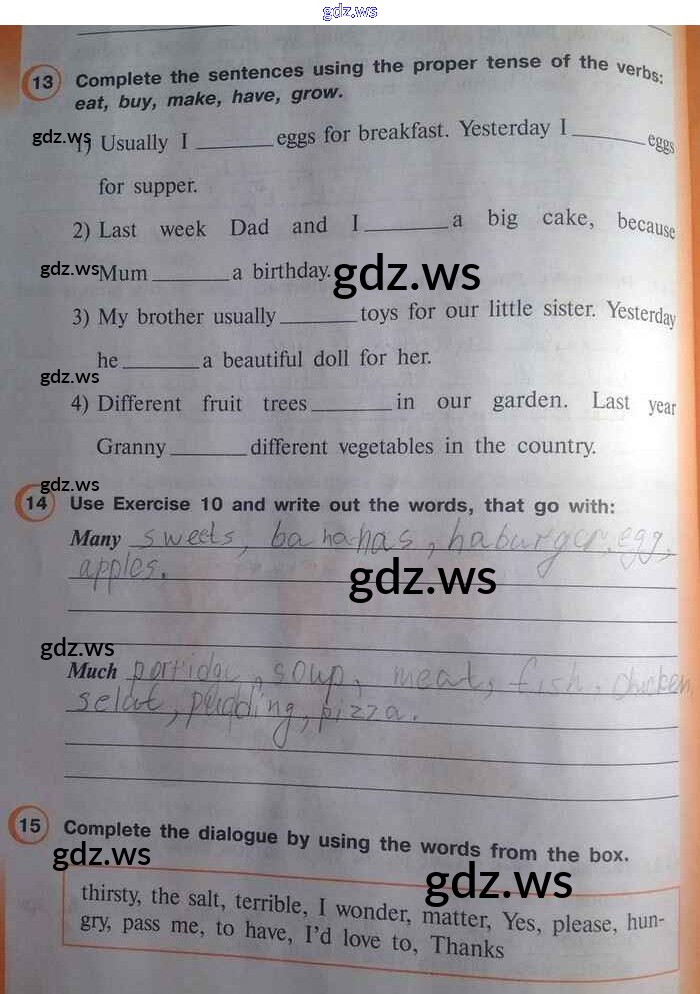 gdz.ws
13 Complete the sentences using the proper tense of the verbs:
eat, buy, make, have, grow.
gdz.ws
1) Usually I ______ eggs for breakfast. Yesterday I ______ eggs
for supper.
2) Last week Dad and I ______ a big cake, because
gdz.ws
Mum ______ a birthday.
gdz.ws
3) My brother usually ______ toys for our little sister. Yesterday
he ______ a beautiful doll for her.
gdz.ws
4) Different fruit trees ______ in our garden. Last year
Granny ______ different vegetables in the country.
gdz.ws
14 Use Exercise 10 and write out the words, that go with:
Many sweets, bananas, haburger, egg,
apples.
gdz.ws
gdz.ws
Much porridge, soup, meat, fish, chicken,
selat, pudding, pizza.
15 Complete the dialogue by using the words from the box.
gdz.ws
gdz.ws
thirsty, the salt, terrible, I wonder, matter, Yes, please, hun-
gry, pass me, to have, I'd love to, Thanks